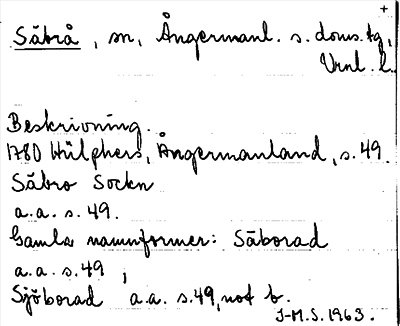 +
Säbrå, sn, Ångermanl. s. doms.tg,
Vrnl. l.
Beskrivning.
1780 Hülphers, Ångermanland, s. 49.
Säbro Sockn
a.a. s. 49.
Gamla namnformer: Säborad
a.a. s. 49,
Sjöborad a.a. s. 49, not b.
J-M.S. 1963.